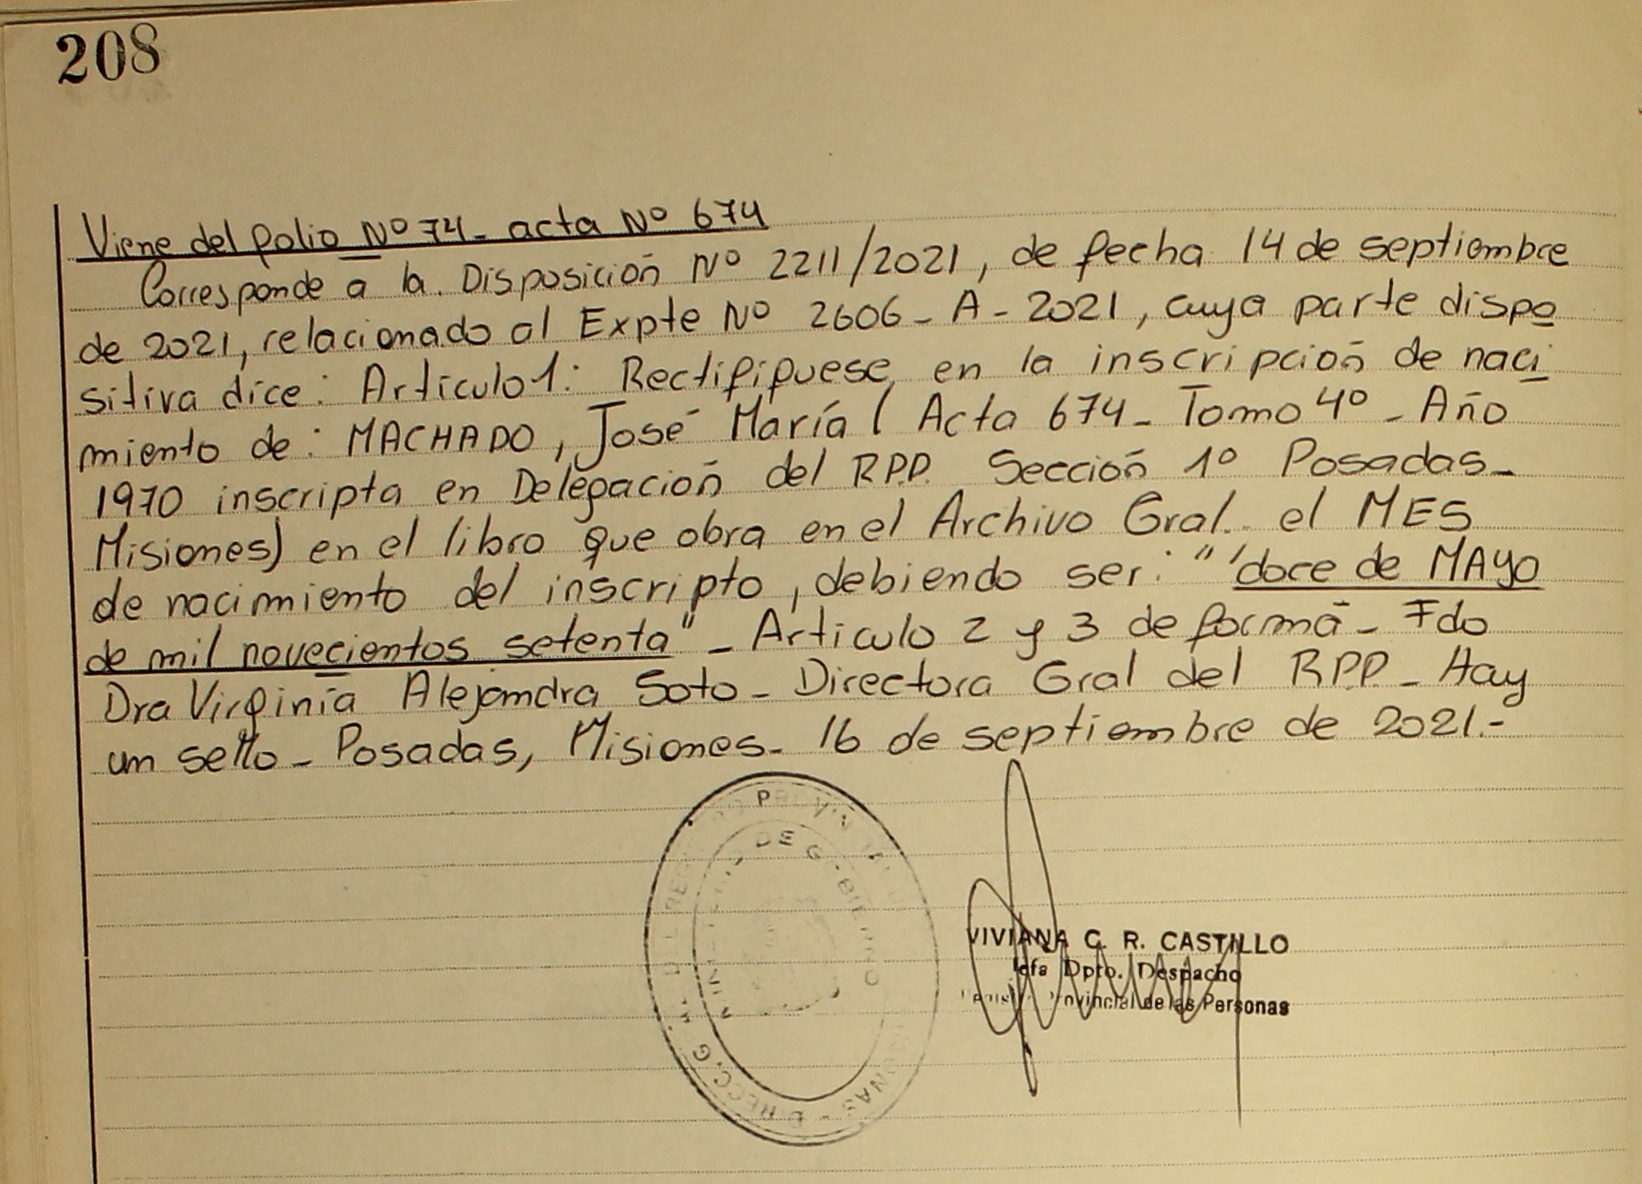 208
Viene del folio Nº 74 - acta Nº 674
Corresponde a la Disposición Nº 2211/2021, de fecha 14 de septiembre
de 2021, relacionado al Expte Nº 2606 - A - 2021, cuya parte dispo
sitiva dice: Artículo 1: Rectifiquese en la inscripción de naci
miento de: MACHADO, José María ( Acta 674 - Tomo 4º - Año
1970 inscripta en Delegación del RPP. Sección 1º Posadas -
Misiones) en el libro que obra en el Archivo Gral. el MES
de nacimiento del inscripto, debiendo ser: "'doce de MAYO
de mil novecientos setenta" - Articulo 2 y 3 de forma - Fdo
Dra Virginia Alejandra Soto - Directora Gral del RPP - Hay
un sello - Posadas, Misiones - 16 de septiembre de 2021.-
VIVIANA C. R. CASTILLO
Jefa Dpto. Despacho
Provincial de las Personas